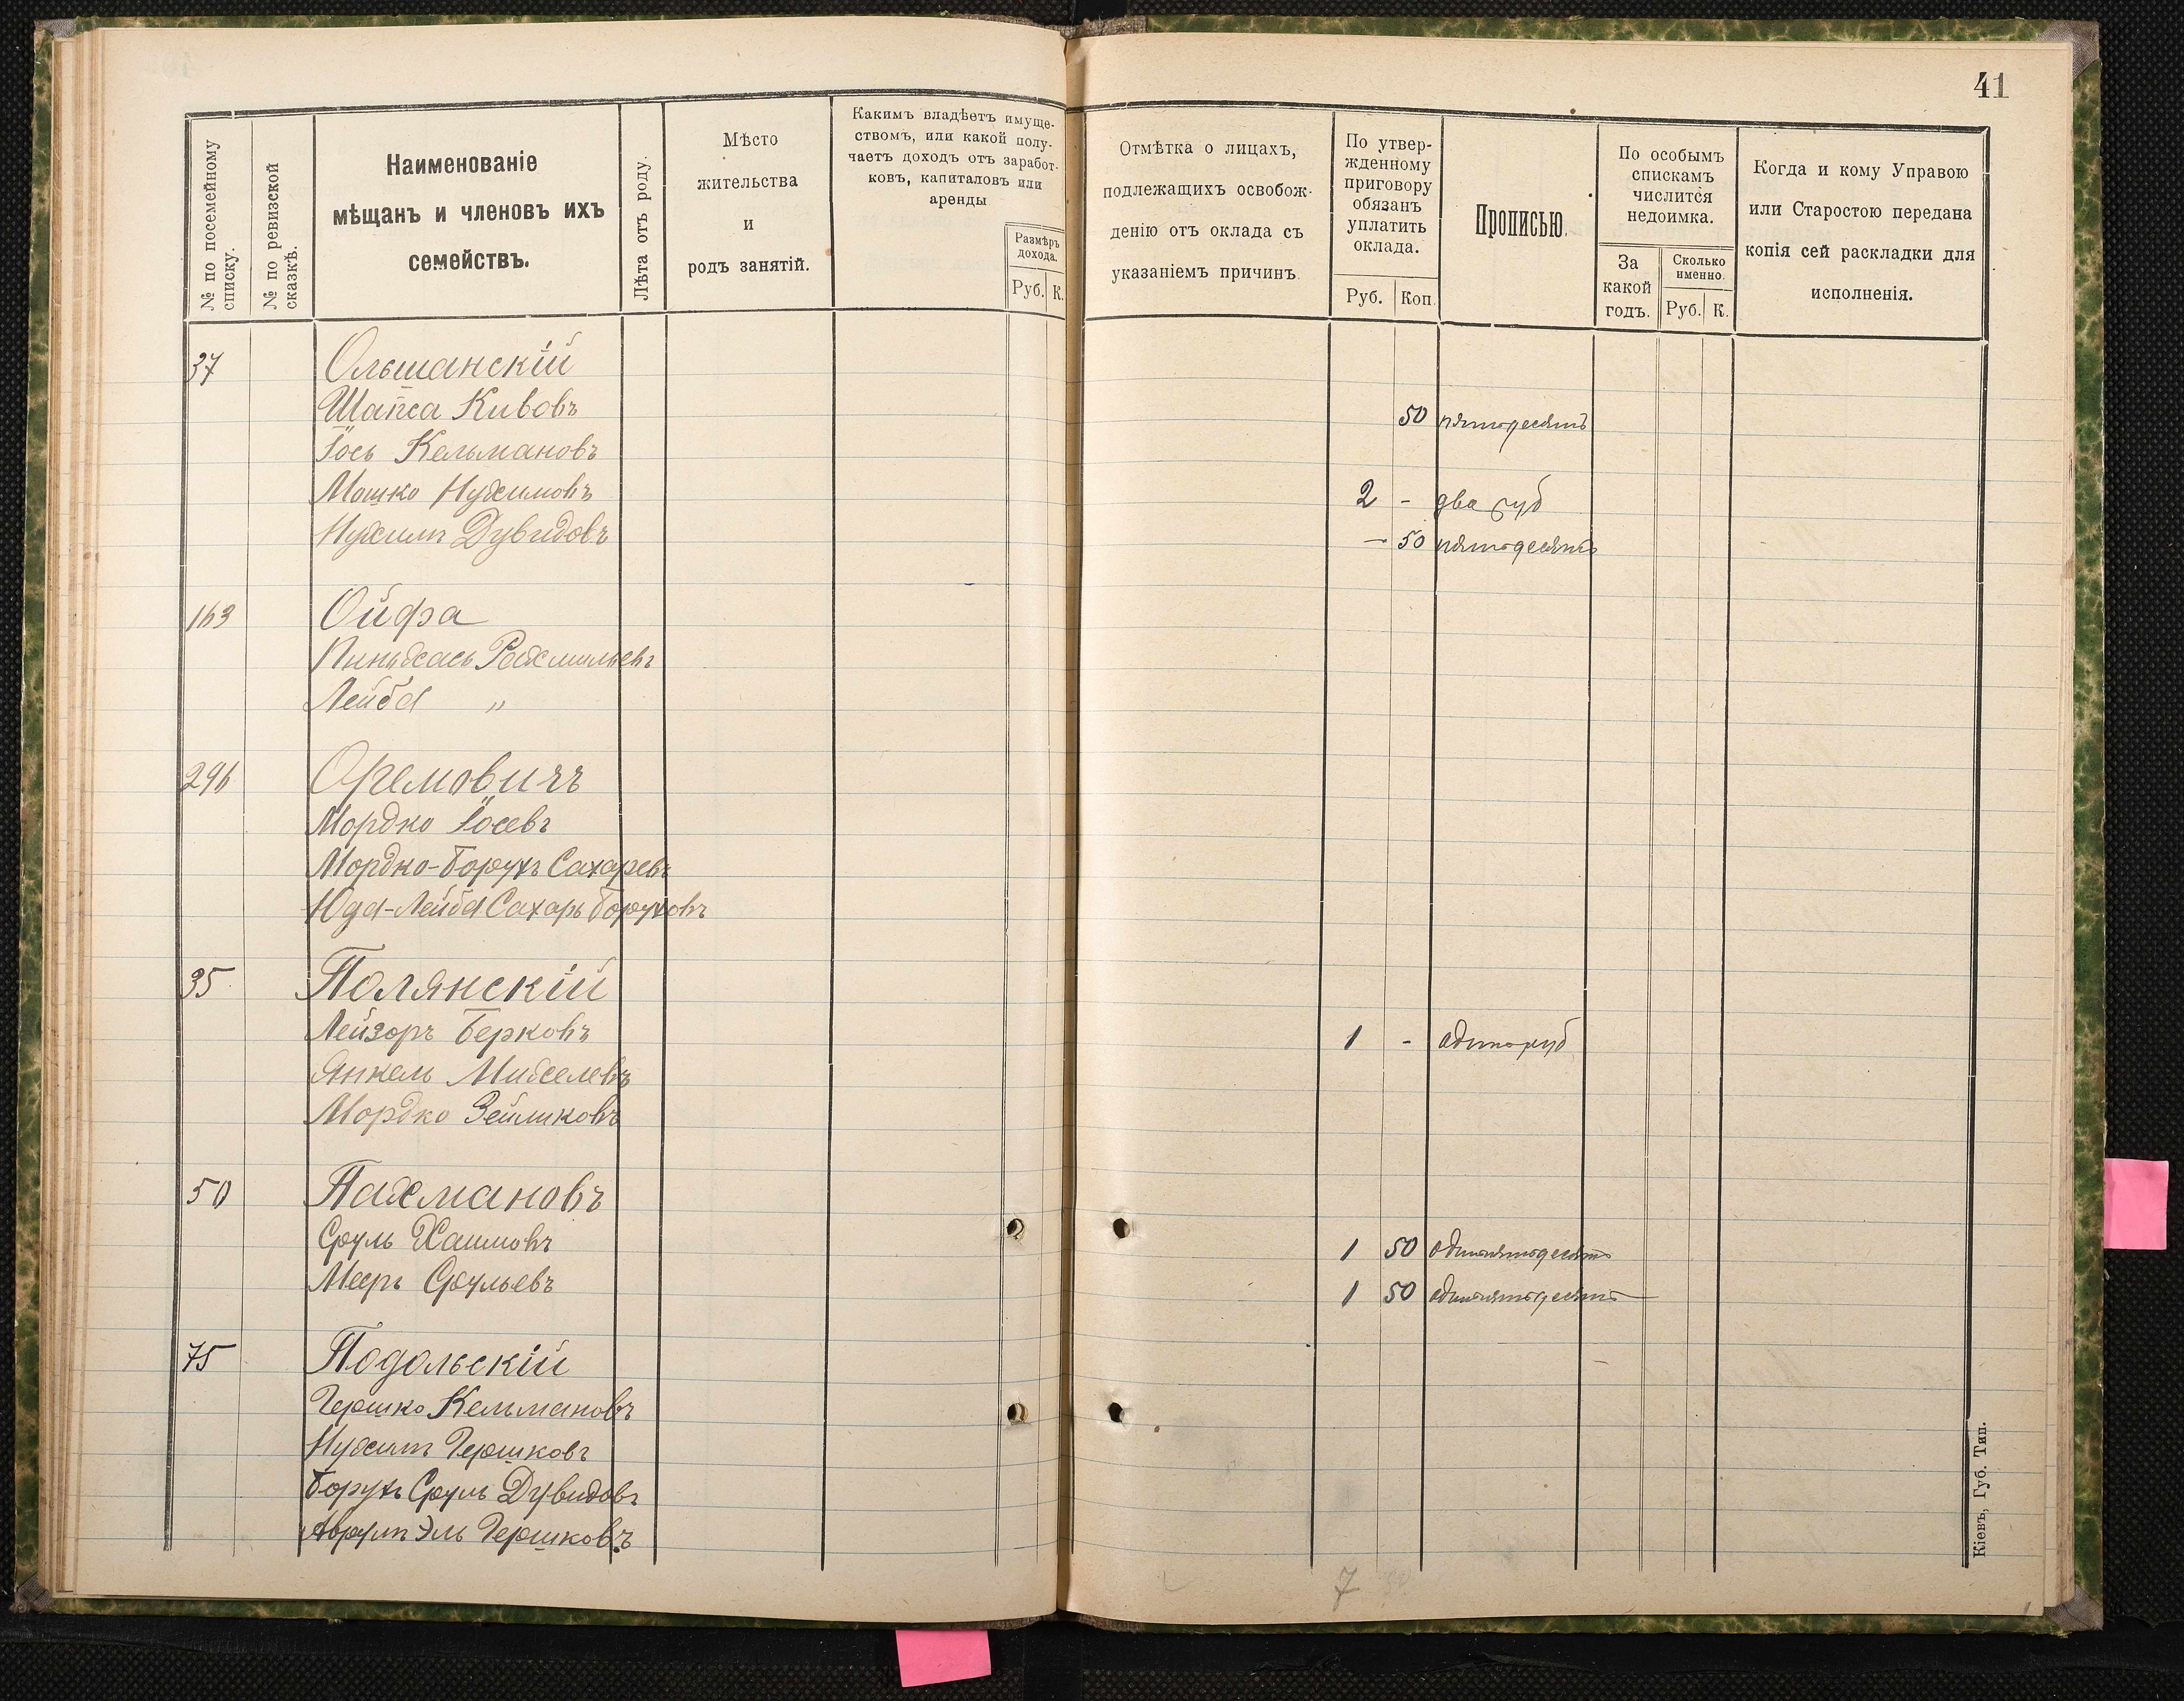 41
№ по посемейному списку.
№ по ревизской сказкѣ.
Наименованіе
мѣщанъ и членовъ ихъ
семействъ.
Лѣта отъ роду.
Мѣсто
жительства
и
родъ занятій.
Какимъ владѣетъ имуще-
ствомъ, или какой полу-
чаетъ доходъ отъ заработ-
ковъ, капиталовъ или
аренды
Размѣръ
дохода.
Руб. К.
Отмѣтка о лицахъ,
подлежащихъ освобож-
денію отъ оклада съ
указаніемъ причинъ.
По утвер-
жденному
приговору
обязанъ
уплатить
оклада.
Руб. Коп.
Прописью.
По особымъ
спискамъ
числится
недоимка.
За
какой
годъ.
Сколько
именно.
Руб. К.
Когда и кому Управою
или Старостою передана
копія сей раскладки для
исполненія.
37 Ольшанскій
Шапса Кивовъ 50 пятьдесятъ
Іось Кельмановъ
Мошко Нухимовъ 2 - два руб
Нухимъ Дувидовъ — 50 пятьдесятъ
163 Ойфа
Пиньхасъ Рахмильевъ
Лейба "
296 Оремовичъ
Мордко Іосевъ
Мордко-Борухъ Сахаревъ
Юда-Лейба Сахаръ Боруховъ
35 Полянскій
Лейзоръ Берковъ 1 - одинъ руб
Янкель Михелевъ
Мордко Зейликовъ
50 Пахмановъ
Сруль Хаимовъ 1 50 одинъ пятьдесятъ
Мееръ Срульевъ 1 50 одинъ пятьдесятъ
75 Подольскій
Гершко Кельмановъ
Нухимъ Гершковъ
Борухъ Сруль Дувидовъ
Аврумъ Эль Гершковъ
7
Кіевъ, Губ. Тип.